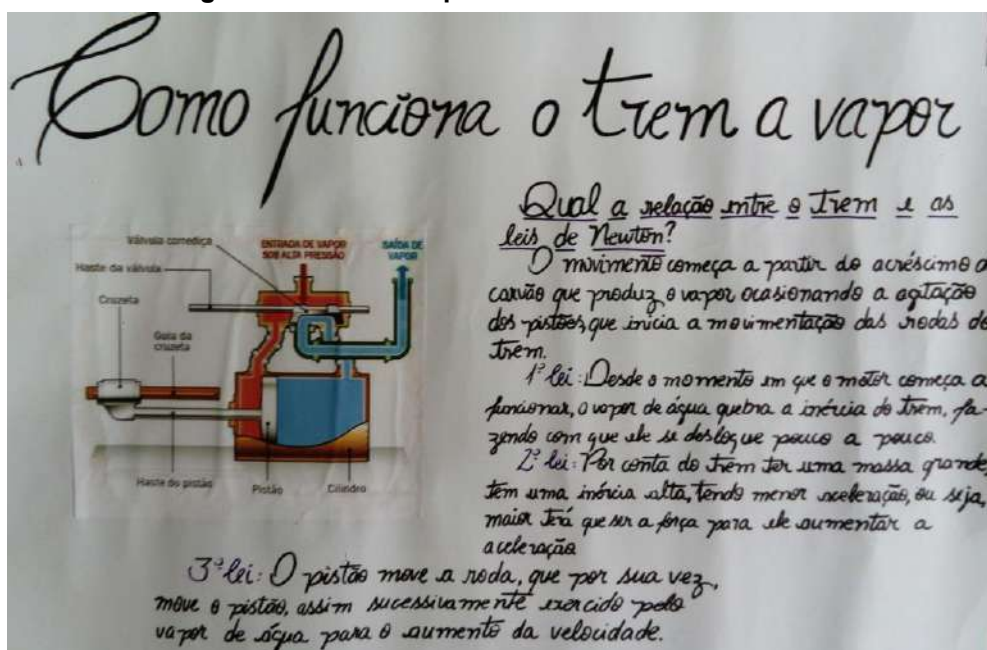 Como funciona o trem a vapor
Válvula corrediça
ENTRADA DE VAPOR
SOB ALTA PRESSÃO
SAÍDA DE
VAPOR
Haste da válvula
Cruzeta
Guia da
cruzeta
Haste do pistão
Pistão
Cilindro
Qual a relação entre o trem e as
leis de Newton?
O movimento começa a partir do acréscimo d
carvão que produz o vapor ocasionando a agitação
dos pistões, que inicia a movimentação das rodas do
trem.
1ª lei: Desde o momento em que o motor começa a
funcionar, o vapor de água quebra a inércia do trem, fa-
zendo com que ele se desloque pouco a pouco.
2ª lei: Por conta do trem ter uma massa grande,
tem uma inércia alta, tendo menor aceleração, ou seja,
maior terá que ser a força para ele aumentar a
aceleração
3ª lei: O pistão move a roda, que por sua vez,
move o pistão, assim sucessivamente exercido pelo
vapor de água para o aumento da velocidade.